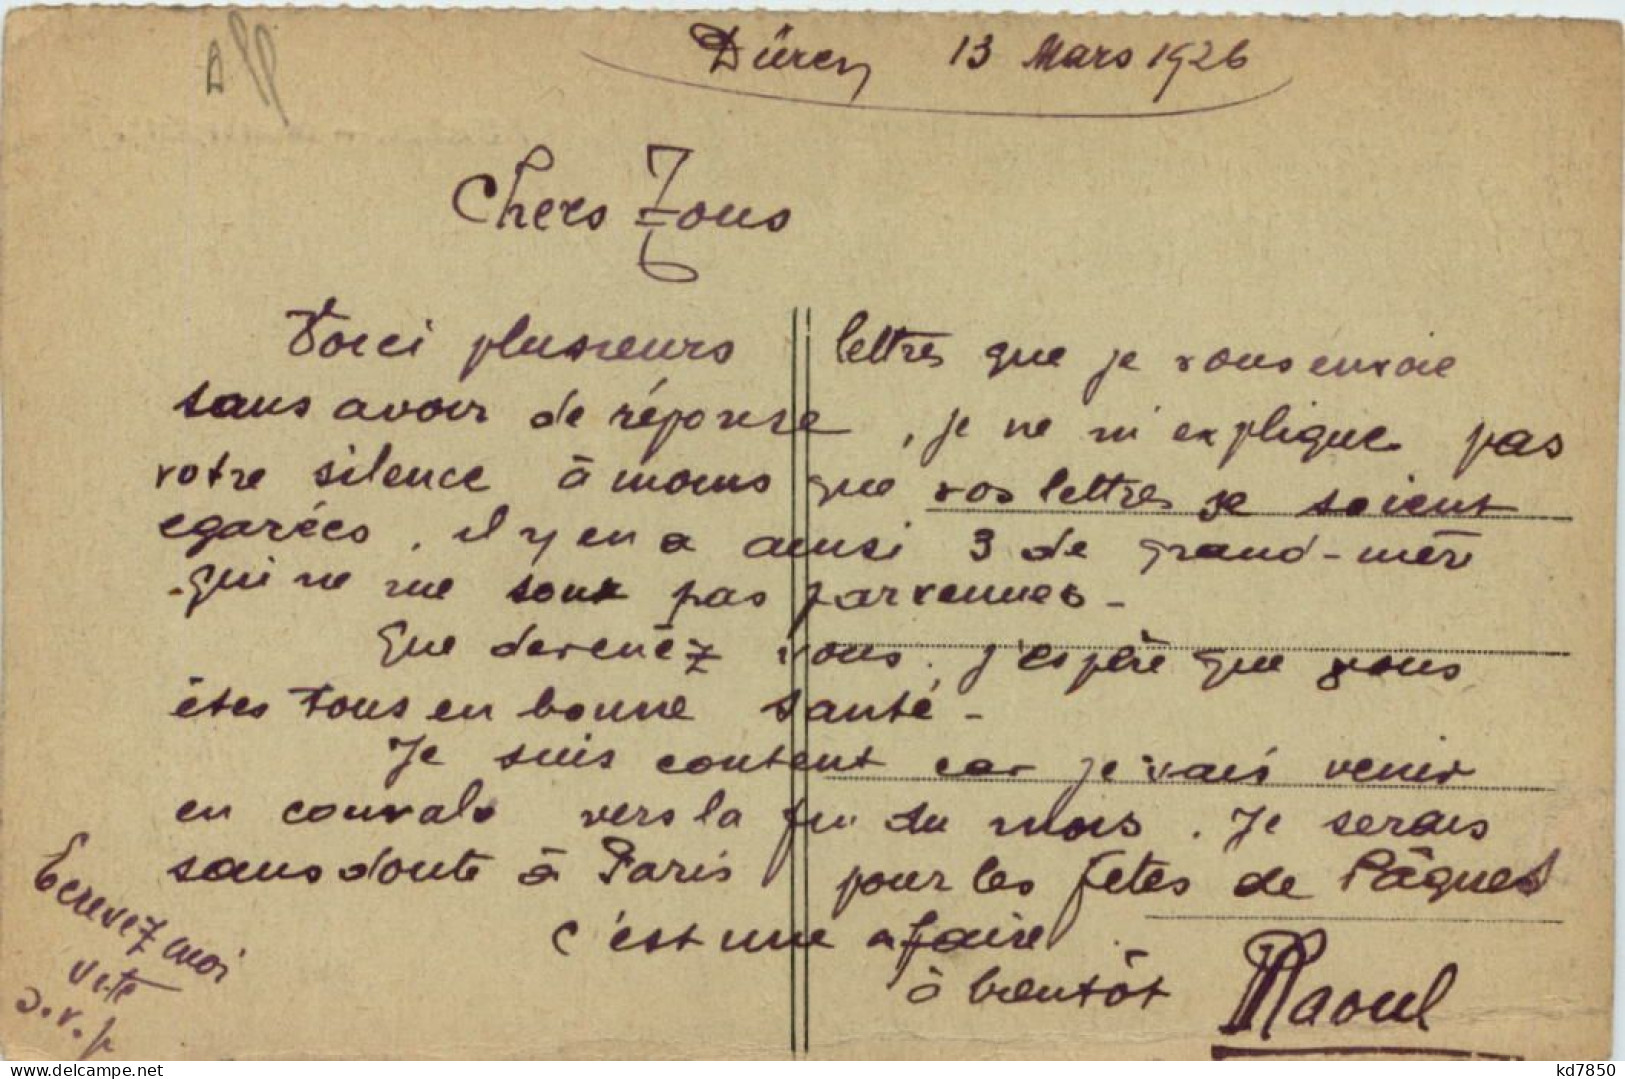 Düren 13 Mars 1926
Chers Tous
Voici plusieurs lettres que je vous envoie
sans avoir de réponse, je ne m'explique pas
votre silence à moins que vos lettres se soient
egarées. il y en a ainsi 3 de grand-mère
qui ne me sont pas parvenues -
Que devenez vous. j'espère que vous
êtes tous en bonne santé -
Je suis content car je vais venir
en convalo vers la fin du mois. Je serais
sans doute à Paris pour les fetes de Pâques
c'est une afaire
à bientôt Raoul
Ecrivez moi
vite
s.v.p
delcampe.net
kd7850